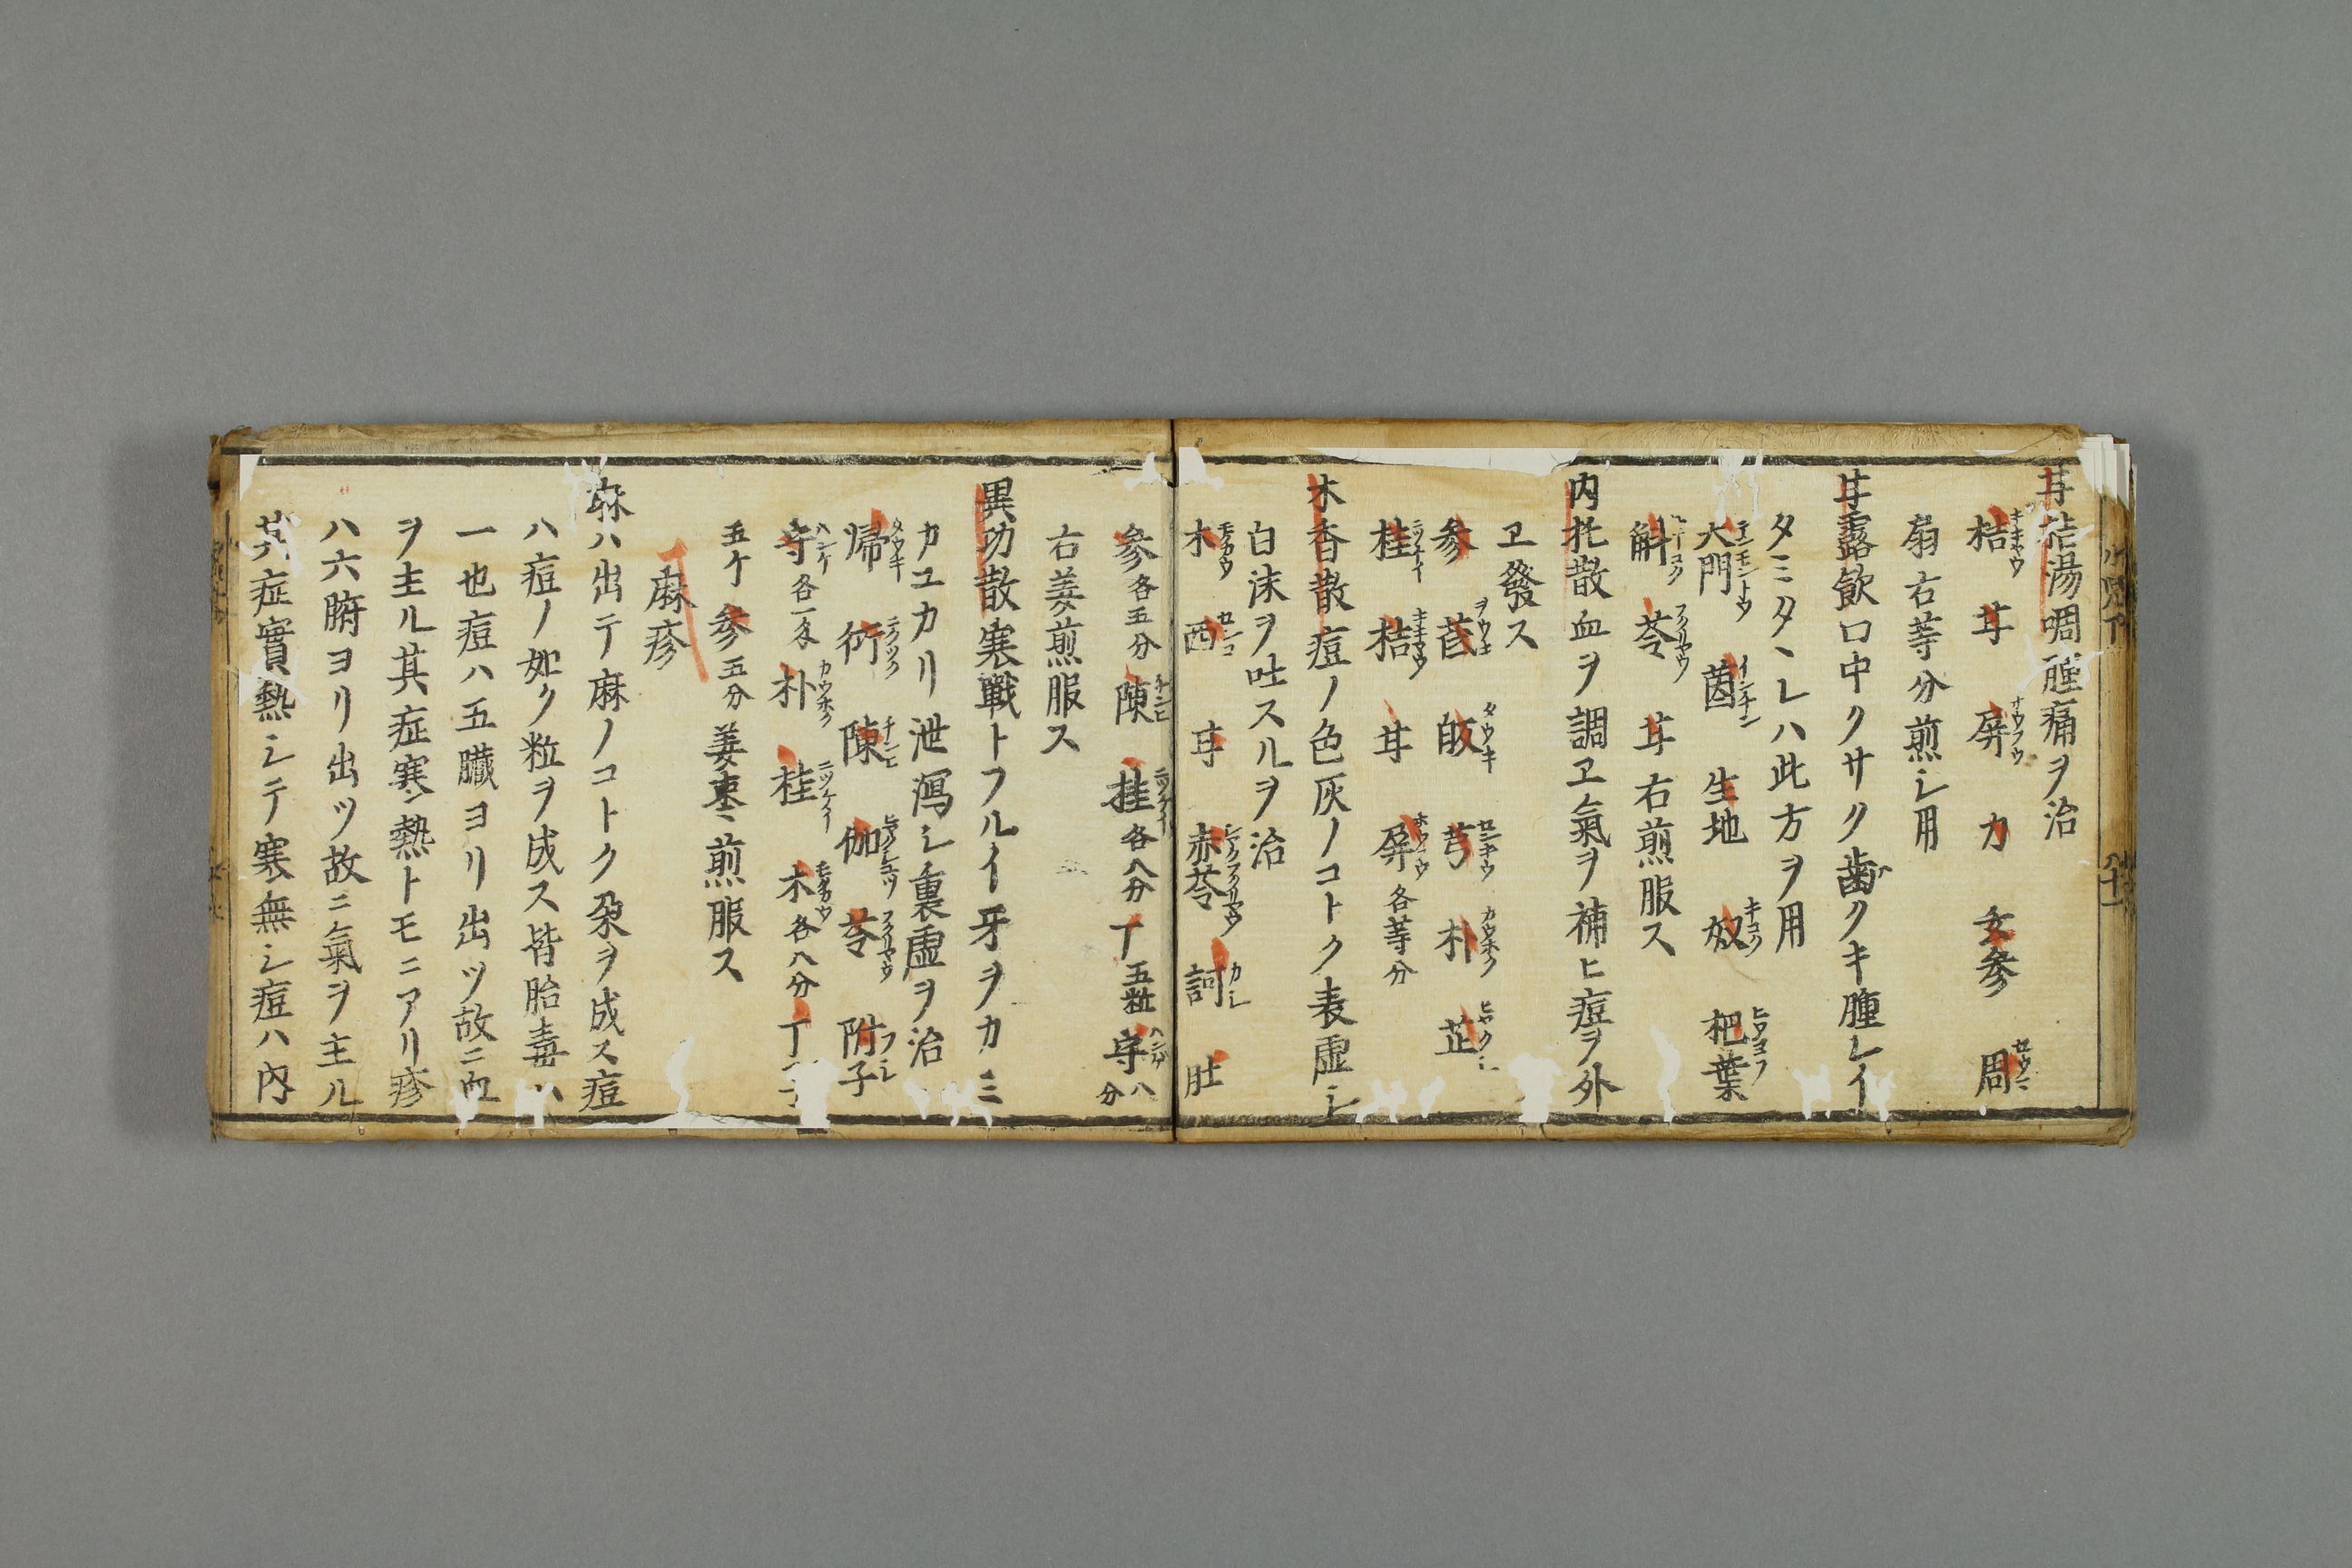 甘桔湯咽腫痛ヲ治
桔 甘 屏 力 玄参 周
扇右等分煎シ用
甘露飲口中クサク歯クキ腫レイ
タミタヽレハ此方ヲ用
天門 茵 生地 奴 杷葉
斛 苓 甘右煎服ス
内托散血ヲ調ヱ氣ヲ補ヒ痘ヲ外
ヱ發ス
参 芪 皈 芎 朴 芷
桂 桔 甘 屏各等分
木香散痘ノ色灰ノコトク表虚シ
白沫ヲ吐スルヲ治
木 甘 赤苓 訶 肚
参各五分 陳 桂各八分 丁五粒 守八分
右姜煎服ス
異功散寒戰トフルイ牙ヲカミ
カユカリ泄瀉シ裏虚ヲ治
帰 陳 伽 苓 附子
守 朴 桂 木各八分 丁
五ケ 参五分 姜棗煎服ス
麻疹
麻ハ出テ麻ノコトク朶ヲ成ス痘
ハ痘ノ如ク粒ヲ成ス皆胎毒ハ
一也痘ハ五臓ヨリ出ツ故ニ血
ヲ主ル其症寒熱トモニアリ疹
ハ六腑ヨリ出ツ故ニ氣ヲ主ル
其症實熱シテ寒無シ痘ハ内